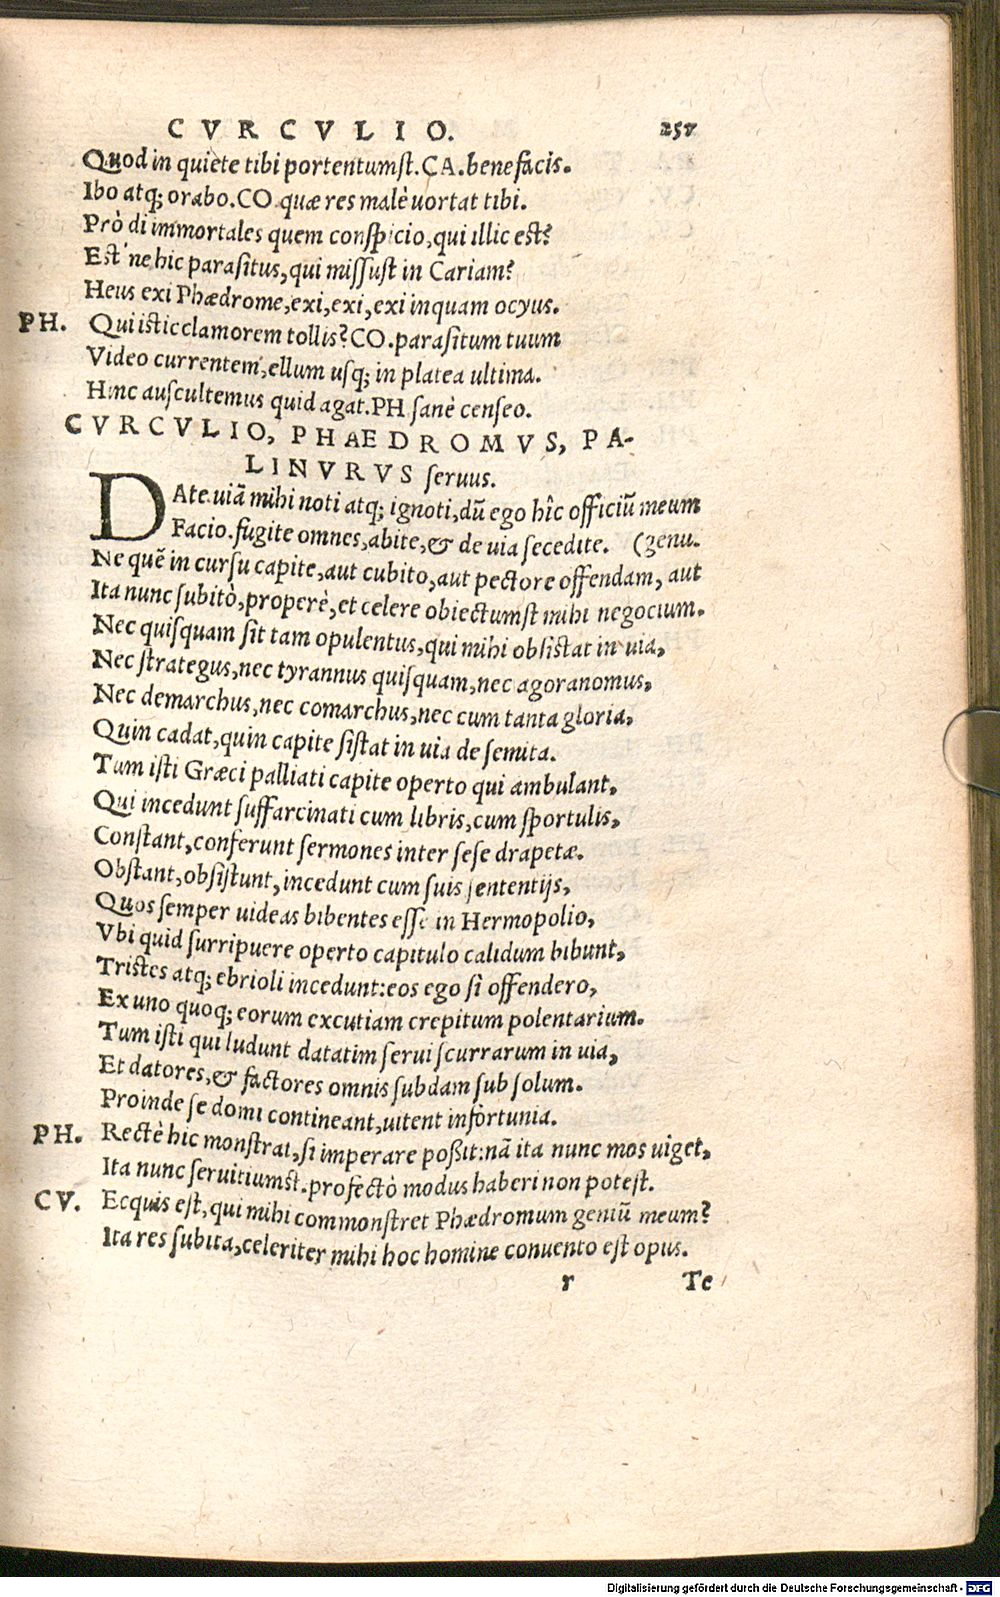 CVRCVLIO. 257
Quod in quiete tibi portentumst. CA. benefacis.
Ibo atq; orabo. CO. quæ res malè uortat tibi.
Prò di immortales quem conspicio, qui illic est?
Est' ne hic parasitus, qui missust in Cariam?
Heus exi Phædrome, exi, exi, exi inquam ocyus.
PH. Qui istic clamorem tollis? CO. parasitum tuum
Video currentem, ellum usq; in platea ultima.
Hinc auscultemus quid agat. PH sanè censeo.
CVRCVLIO, PHAEDROMVS, PA-
LINVRVS seruus.
DAte uiã mihi noti atq; ignoti, dũ ego hîc officiũ meum
Facio. fugite omnes, abite, & de uia secedite. (genu.
Ne quẽ in cursu capite, aut cubito, aut pectore offendam, aut
Ita nunc subitò, properè, et celere obiectumst mihi negocium.
Nec quisquam sit tam opulentus, qui mihi obsistat in uia,
Nec strategus, nec tyrannus quisquam, nec agoranomus,
Nec demarchus, nec comarchus, nec cum tanta gloria,
Quin cadat, quin capite sistat in uia de semita.
Tum isti Græci palliati capite operto qui ambulant,
Qui incedunt suffarcinati cum libris, cum sportulis,
Constant, conferunt sermones inter sese drapetæ.
Obstant, obsistunt, incedunt cum suis sententijs,
Quos semper uideas bibentes esse in Hermopolio,
Vbi quid surripuere operto capitulo calidum bibunt,
Tristes atq; ebrioli incedunt: eos ego si offendero,
Ex uno quoq; eorum excutiam crepitum polentarium.
Tum isti qui ludunt datatim serui scurrarum in uia,
Et datores, & factores omnis subdam sub solum.
Proinde se domi contineant, uitent infortunia.
PH. Rectè hic monstrat, si imperare poßit: nã ita nunc mos uiget,
Ita nunc seruitiumst. profectò modus haberi non potest.
CV. Ecquis est, qui mihi commonstret Phædromum geniũ meum?
Ita res subita, celeriter mihi hoc homine conuento est opus.
r Te
Digitalisierung gefördert durch die Deutsche Forschungsgemeinschaft - DFG